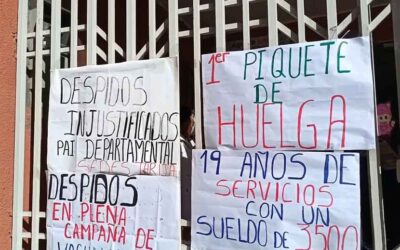 DESPIDOS
INJUSTIFICADOS
PAI DEPARTAMENTAL
SEDES
DESPIDOS
EN PLENA
CAMPAÑA
DE
1er PIQUETE
DE
HUELGA
19 AÑOS DE
SERVICIOS
CON UN
SUELDO DE 3500